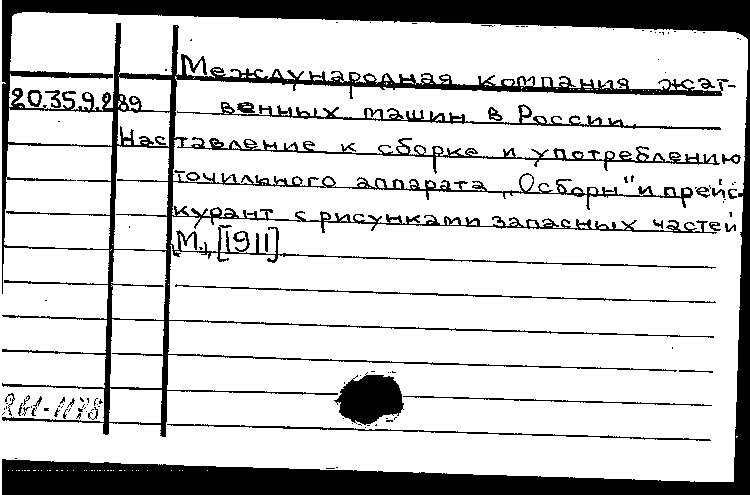 Международная компания жат-
20.35.9.289 венных машин в России.
Наставление к сборке и употреблению
точильного аппарата „Осборн" и прейс-
курант с рисунками запасных частей.
М., [1911].